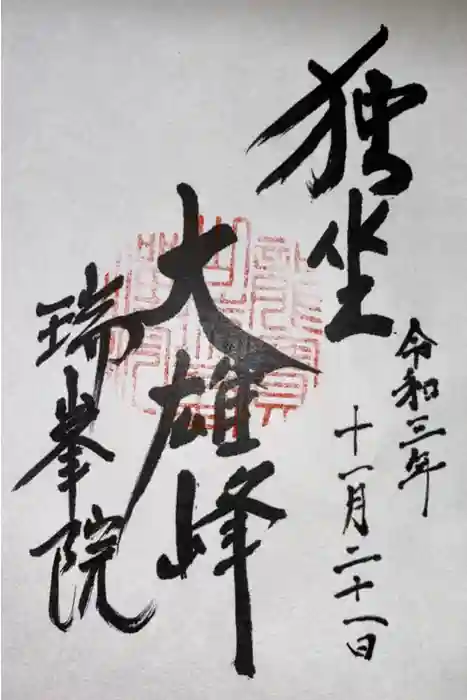 令和三年
十一月二十一日
独坐
大雄峰
瑞峯院